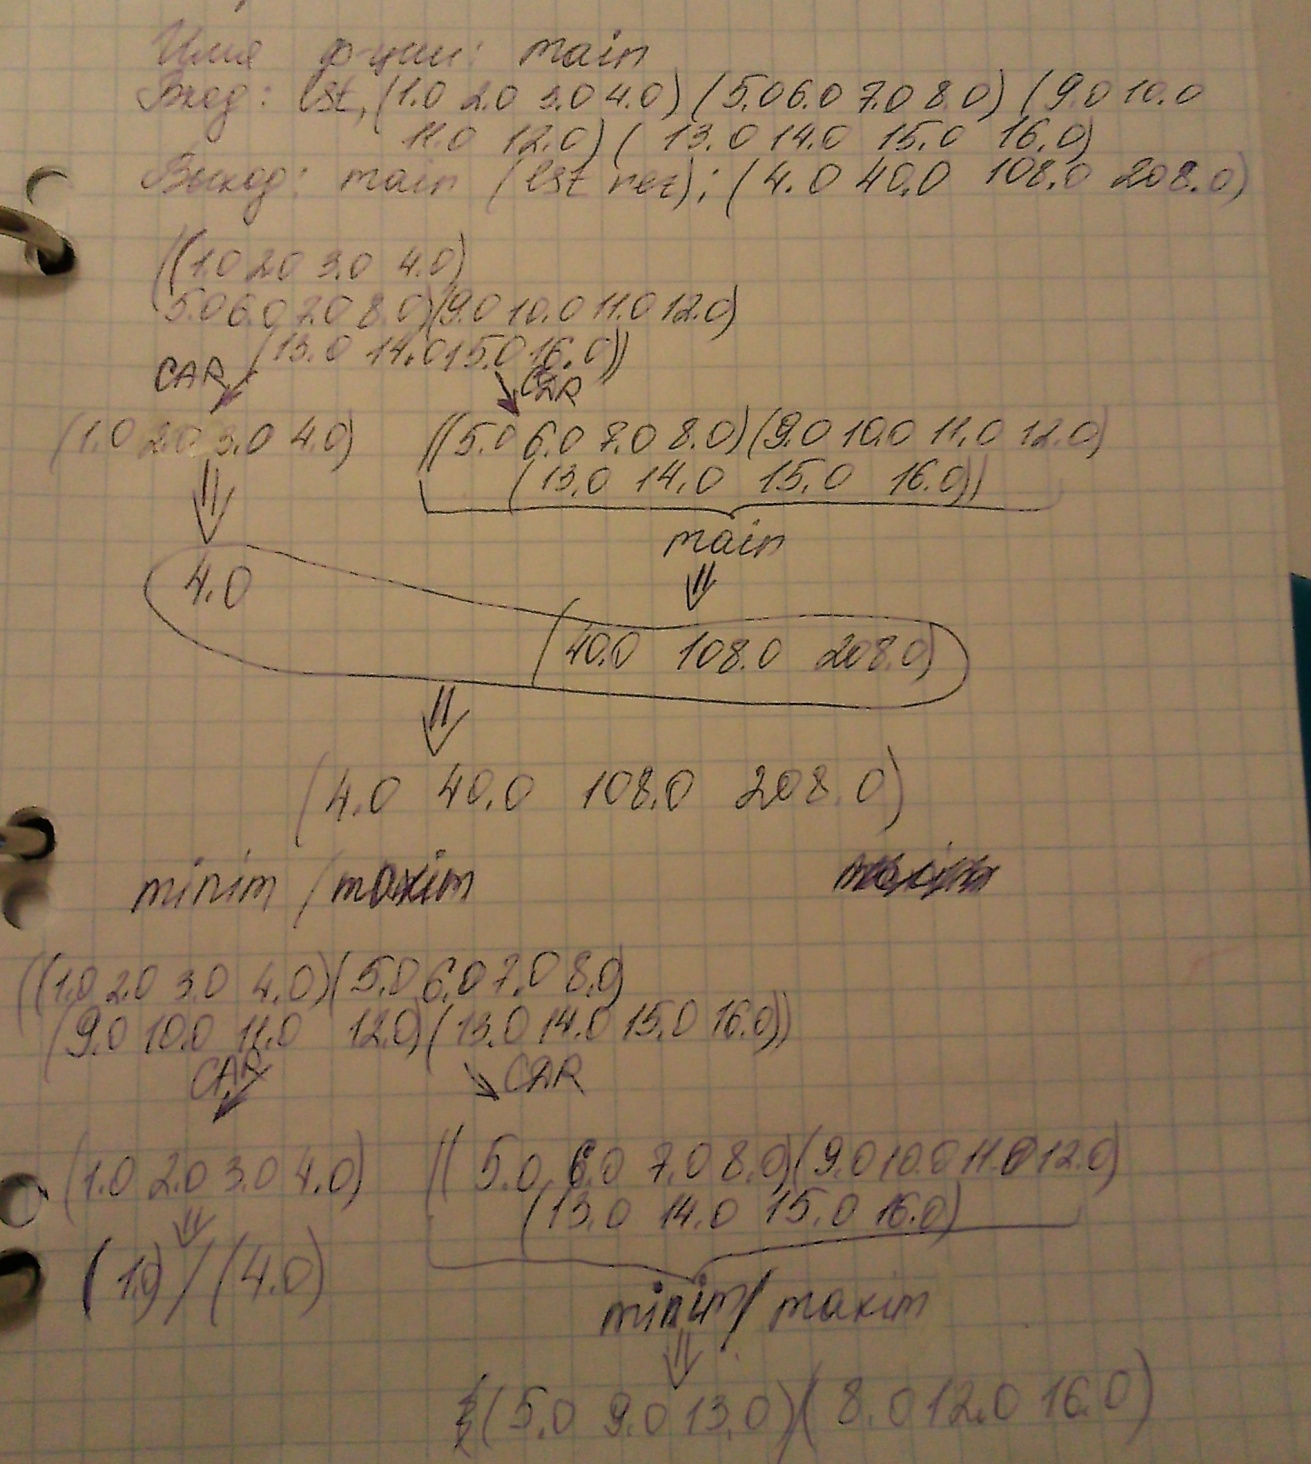 Имя ф-ции: main
Вход: lst, (1.0 2.0 3.0 4.0) (5.0 6.0 7.0 8.0) (9.0 10.0
11.0 12.0) ( 13.0 14.0 15.0 16.0)
Выход: main (lst rez); (4.0 40.0 108.0 208.0)
((1.0 2.0 3.0 4.0)
5.0 6.0 7.0 8.0)(9.0 10.0 11.0 12.0)
(13.0 14.0 15.0 16.0))
CAR CDR
(1.0 2.0 3.0 4.0) ((5.0 6.0 7.0 8.0)(9.0 10.0 11.0 12.0)
(13.0 14.0 15.0 16.0))
main
4.0
(40.0 108.0 208.0)
(4.0 40.0 108.0 208.0)
minim / maxim
((1.0 2.0 3.0 4.0)(5.0 6.0 7.0 8.0)
(9.0 10.0 11.0 12.0)(13.0 14.0 15.0 16.0))
CAR CDR
(1.0 2.0 3.0 4.0) (( 5.0 6.0 7.0 8.0)(9.0 10.0 11.0 12.0)
(13.0 14.0 15.0 16.0)
(1.0) / (4.0)
minim / maxim
(5.0 9.0 13.0)(8.0 12.0 16.0)